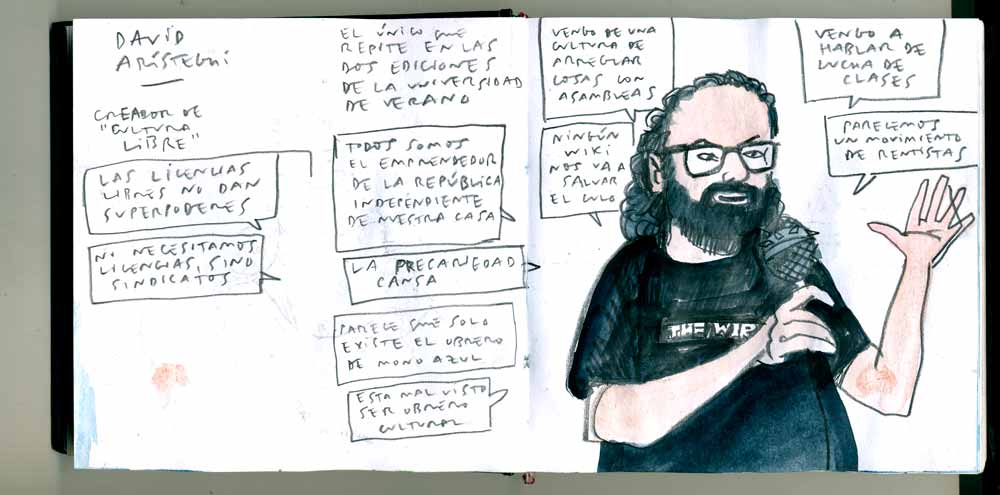 DAVID
ARÍSTEGUI
CREADOR DE
"CULTURA
LIBRE"
LAS LICENCIAS
LIBRES NO DAN
SUPERPODERES
NO NECESITAMOS
LICENCIAS, SINO
SINDICATOS
EL ÚNICO QUE
REPITE EN LAS
DOS EDICIONES
DE LA UNIVERSIDAD
DE VERANO
TODOS SOMOS
EL EMPRENDEDOR
DE LA REPÚBLICA
INDEPENDIENTE
DE NUESTRA CASA
LA PRECARIEDAD
CANSA
PARECE QUE SOLO
EXISTE EL OBRERO
DE MONO AZUL
ESTA MAL VISTO
SER OBRERO
CULTURAL
VENGO DE UNA
CULTURA DE
ARREGLAR
COSAS CON
ASAMBLEAS
NINGÚN
WIKI
NOS VA A
SALVAR
EL CULO
VENGO A
HABLAR DE
LUCHA DE
CLASES
PARECEMOS
UN MOVIMIENTO
DE RENTISTAS
THE WIR